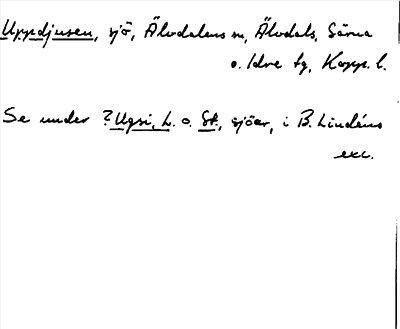 Uppdjusen, sjö, Älvdalens sn, Älvdals, Särna
o. Idre tg, Kopp. l.
Se under ? Ugsi, L. o. St., sjöar, i B. Lindéns
exc.